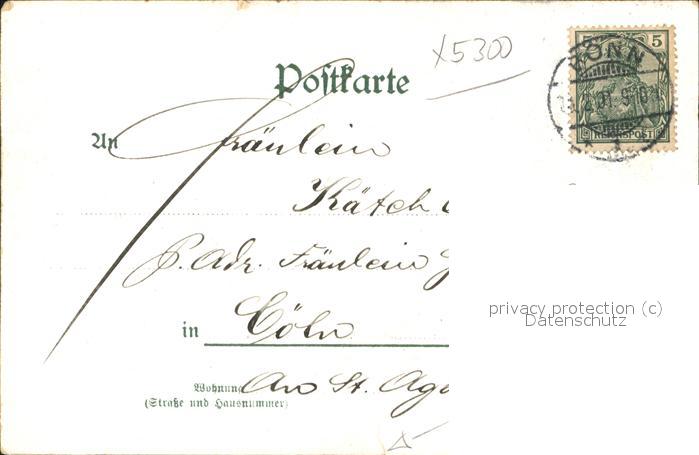 x5300
Postkarte
5 5
BONN
REICHSPOST
An Fräulein
Kätch
p. Adr. Fräulein
privacy protection (c)
Datenschutz
in Cöln
Wohnung An St. Ag
(Straße und Hausnummer)